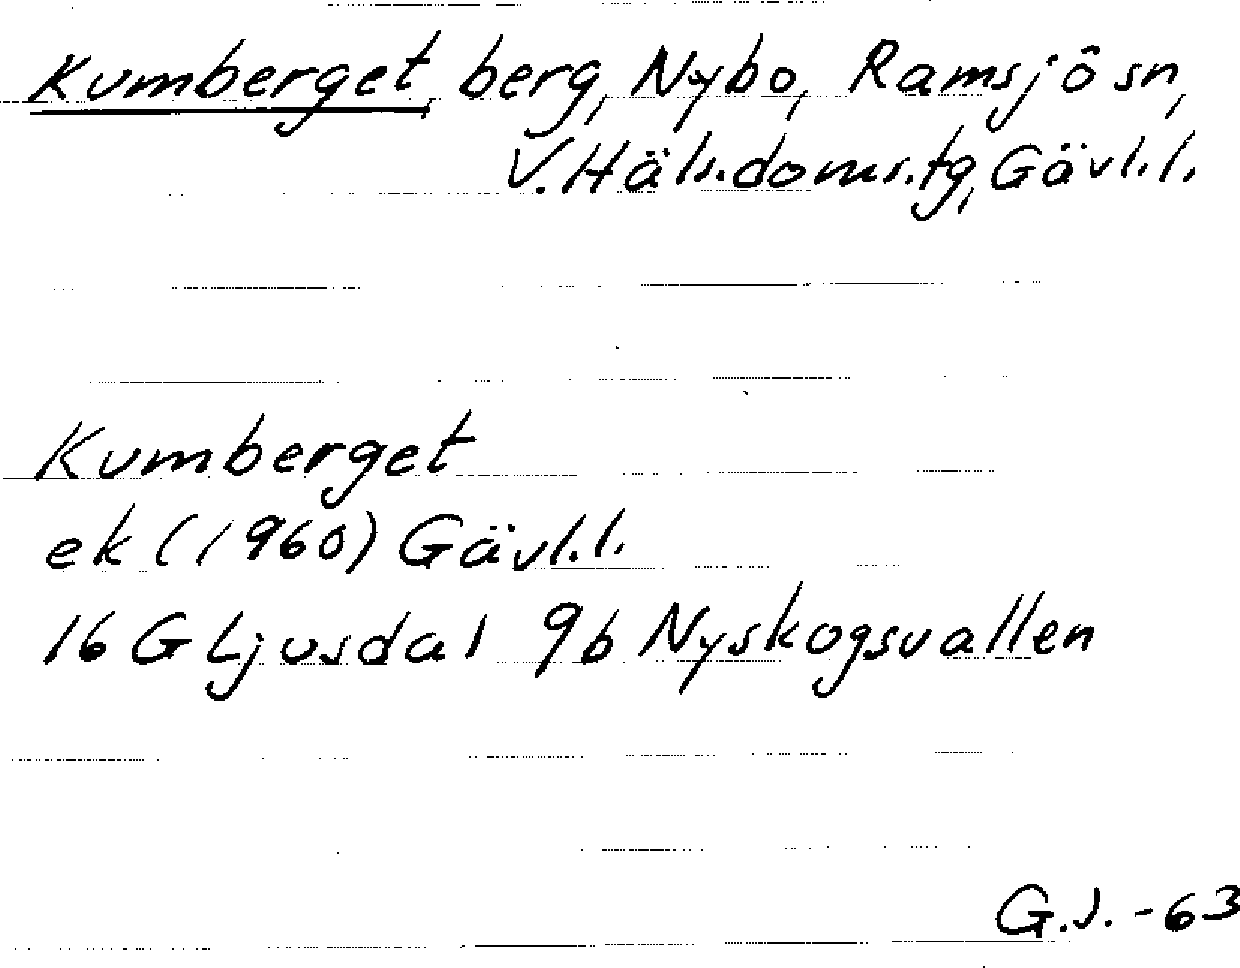 Kumberget, berg, Nybo, Ramsjö sn,
V. Häls. doms.tg, Gävl.l.
Kumberget
ek (1960) Gävl.l.
16 G Ljusdal 9b Nyskogsvallen
G.J. -63